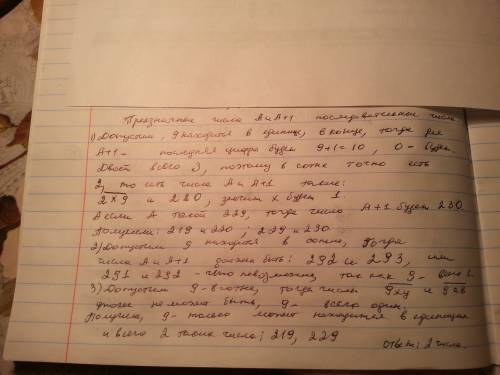 Трехзначные числа А и А+1 последовательные числа
1) Допустим, 9 находится в единице, в конце, тогда для
А+1 - последняя цифра будет 9+1=10, 0 - будет.
Двоек всего 3, поэтому в сотне точно есть
2, то есть числа А и А+1 такие:
2x9 и 220, значит x будет 1.
А если А такой 229, тогда число А+1 будет 230.
Получаем: 219 и 220; 229 и 230.
2) Допустим 9 находится в сотне, тогда
числа А и А+1 должна быть: 292 и 293, или
291 и 292 - что невозможно, так как 9 - всего 1.
3) Допустим 9 - в сотне, тогда числы 9xy и 9ав
этого не может быть, 9 - всего один.
Получаем, 9 - только может находится в единицах
и всего 2 таких числа: 219, 229
ответ: 2 числа.